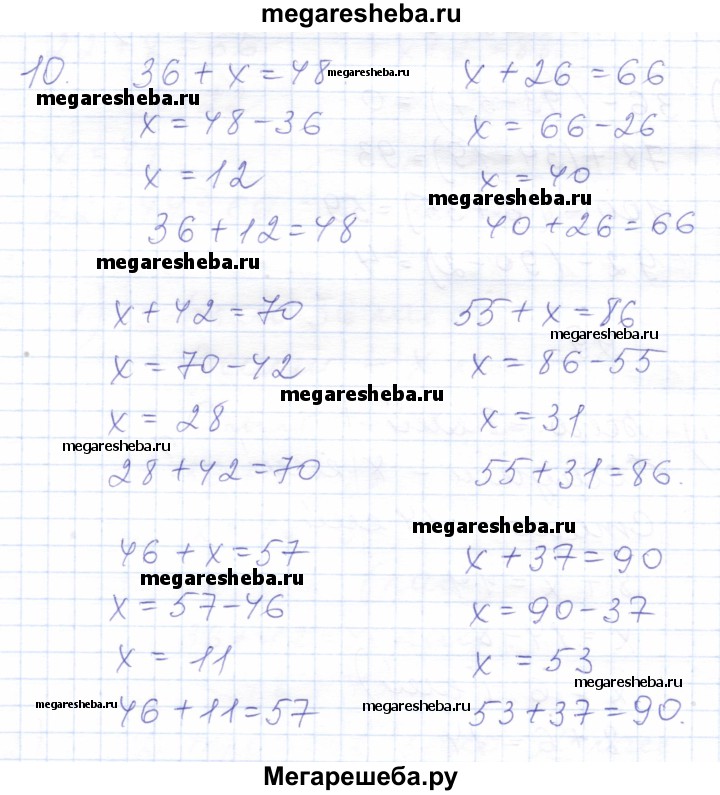 megaresheba.ru
10. 36 + x = 48 megaresheba.ru x + 26 = 66
megaresheba.ru
x = 48 - 36 x = 66 - 26
x = 12 x = 40
megaresheba.ru
36 + 12 = 48 40 + 26 = 66
megaresheba.ru
x + 42 = 70 55 + x = 86
megaresheba.ru
x = 70 - 42 x = 86 - 55
megaresheba.ru
x = 28 x = 31
megaresheba.ru
28 + 42 = 70 55 + 31 = 86.
megaresheba.ru
46 + x = 57 x + 37 = 90
megaresheba.ru
x = 57 - 46 x = 90 - 37
x = 11 x = 53
megaresheba.ru
megaresheba.ru 46 + 11 = 57 megaresheba.ru 53 + 37 = 90.
Мегарешеба.ру